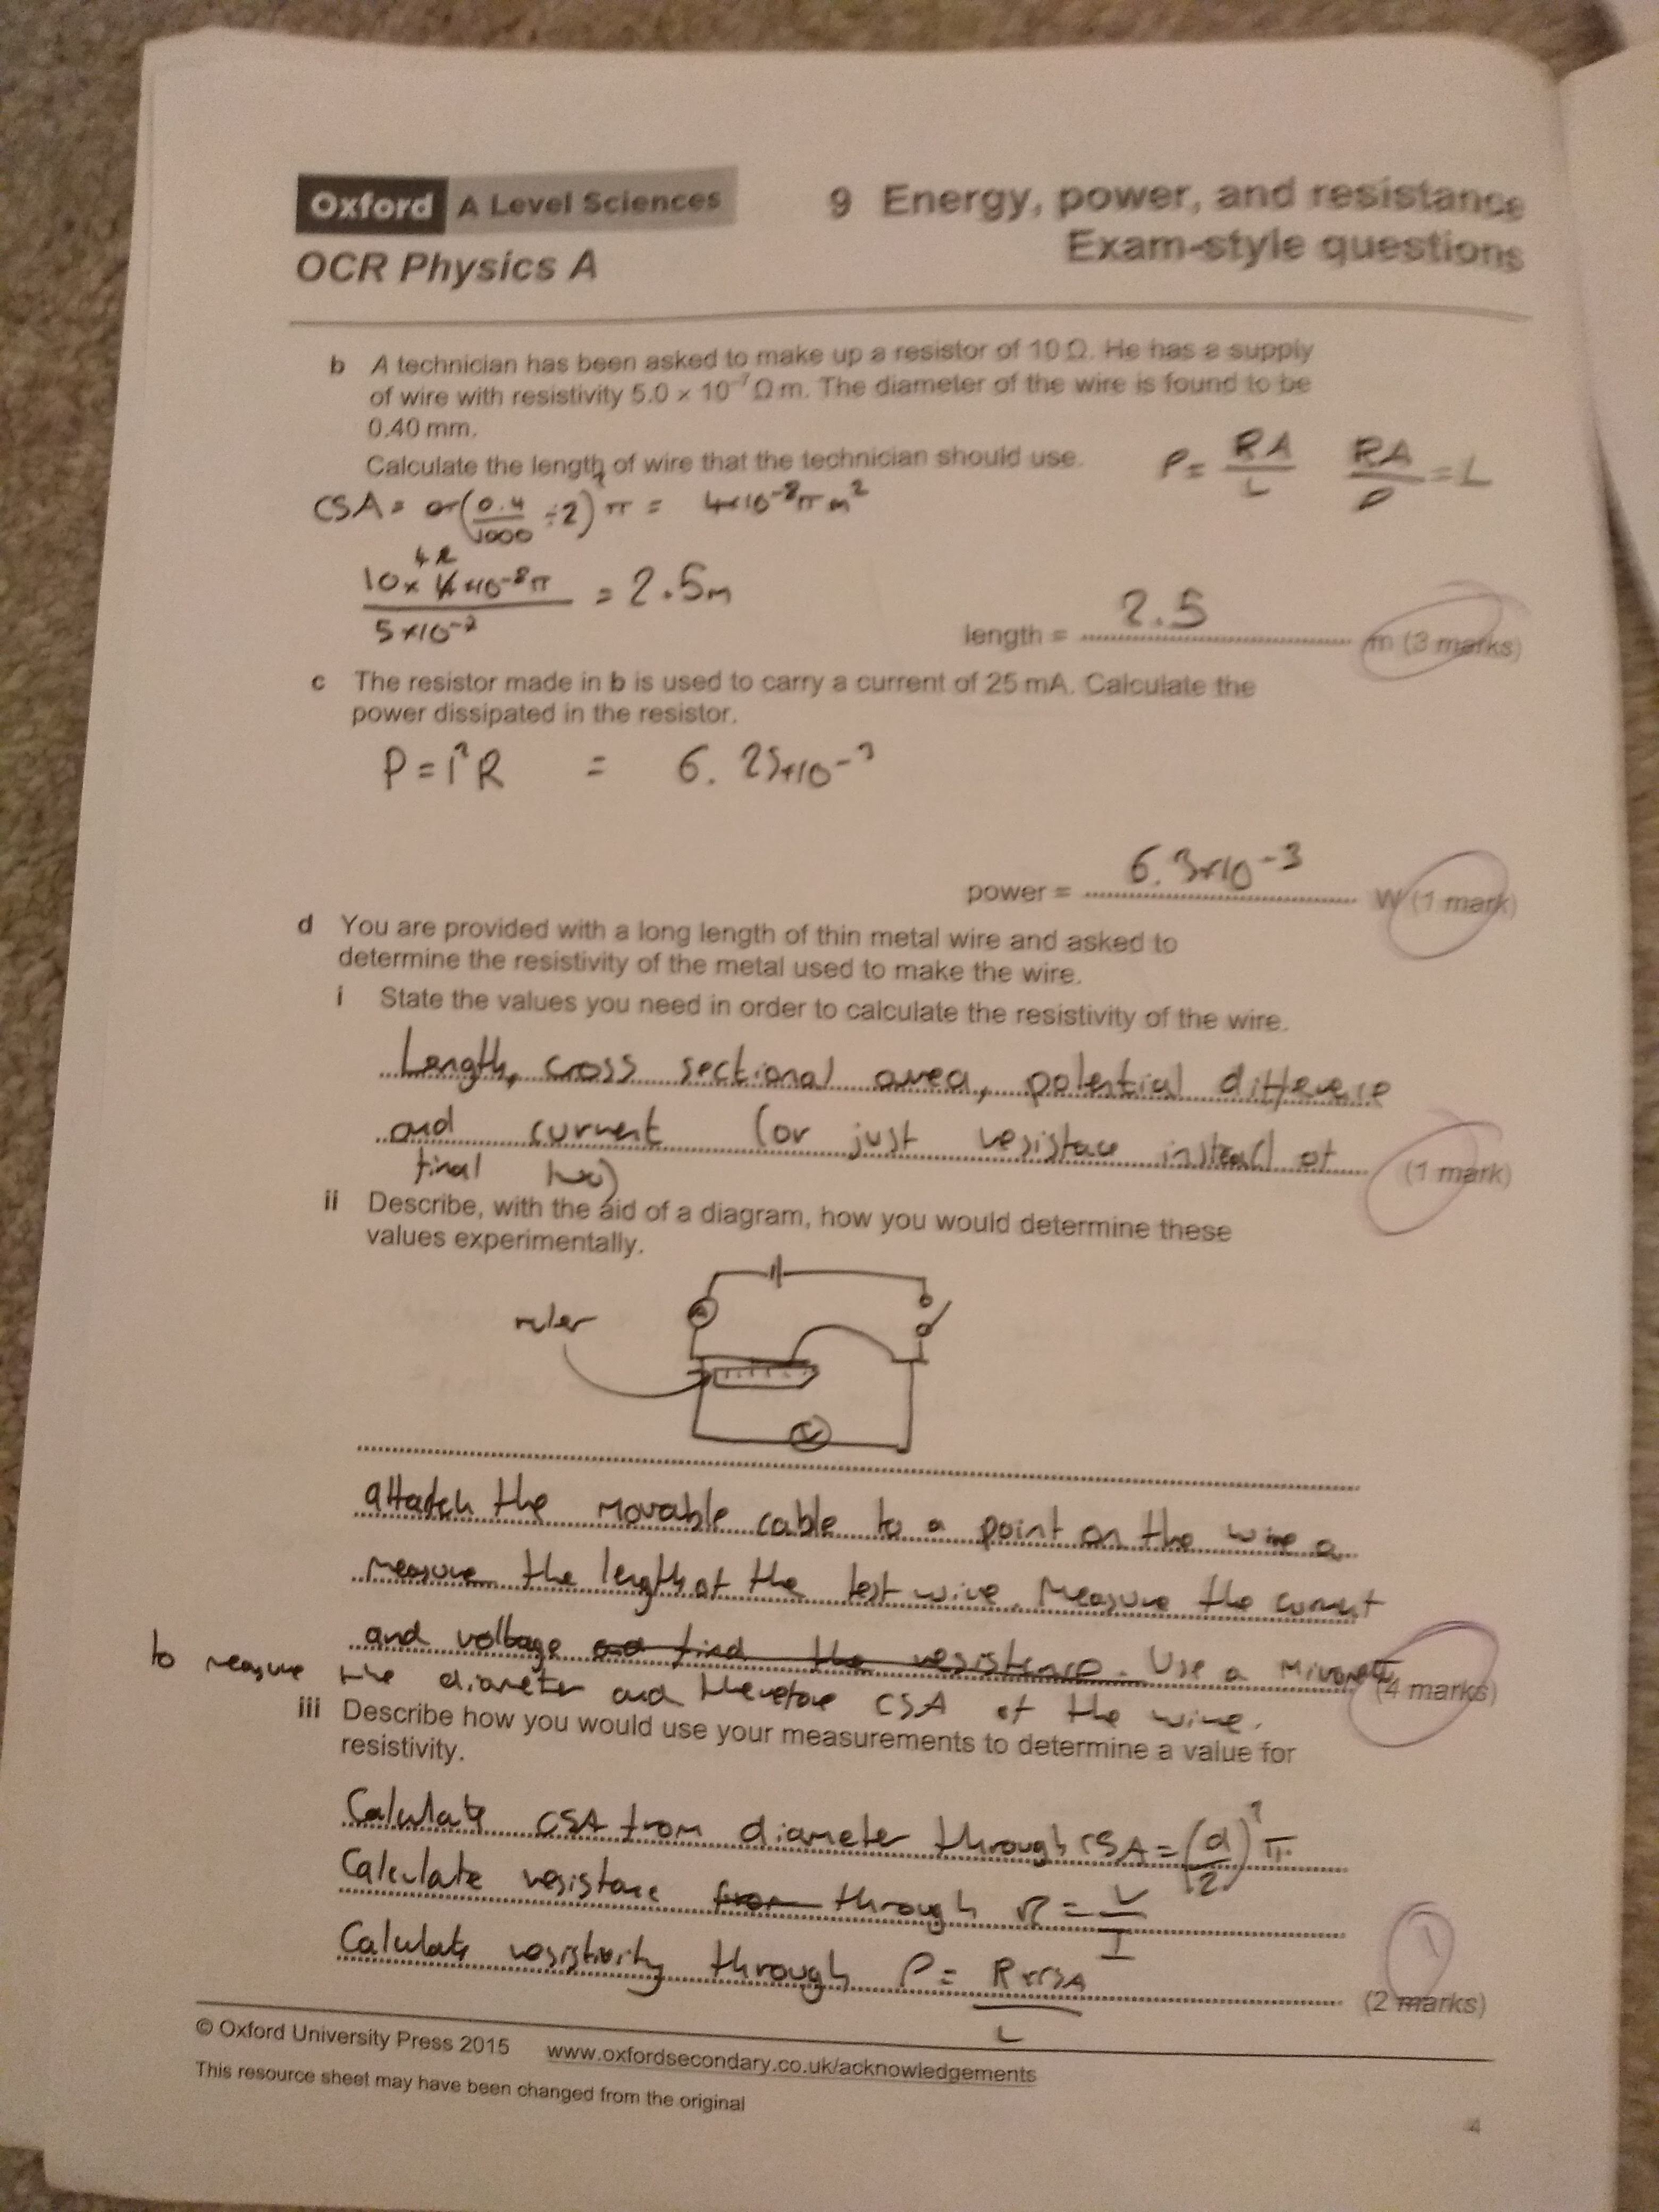 Oxford A Level Sciences
OCR Physics A
9 Energy, power, and resistance
Exam-style questions
b A technician has been asked to make up a resistor of 10 Ω. He has a supply
of wire with resistivity 5.0 × 10⁻⁷ Ω m. The diameter of the wire is found to be
0.40 mm.
Calculate the length of wire that the technician should use.
ρ = RA/L RA/ρ = L
CSA = (0.4/1000 ÷2)² π = 4×10⁻⁸π m²
10 × 4×10⁻⁸π / 5×10⁻⁷ = 2.5m
length = 2.5 m (3 marks)
c The resistor made in b is used to carry a current of 25 mA. Calculate the
power dissipated in the resistor.
P = I²R = 6.25×10⁻³
power = 6.3×10⁻³ W (1 mark)
d You are provided with a long length of thin metal wire and asked to
determine the resistivity of the metal used to make the wire.
i State the values you need in order to calculate the resistivity of the wire.
Length, cross sectional area, potential difference
and current (or just resistace instead of
final two) (1 mark)
ii Describe, with the aid of a diagram, how you would determine these
values experimentally.
ruler
A
V
attatch the movable cable to a point on the wire a
measure the length of the test wire. Measure the current
and voltage and find the resistance. Use a
to measure the diameter and therefore CSA of the wire. (4 marks)
iii Describe how you would use your measurements to determine a value for
resistivity.
Calculate CSA from diameter through CSA = (d/2)² π
Calculate resistance from through R = V/I
Calculate resistivity through ρ = R×CSA/L
1
(2 marks)
© Oxford University Press 2015 www.oxfordsecondary.co.uk/acknowledgements
This resource sheet may have been changed from the original
4